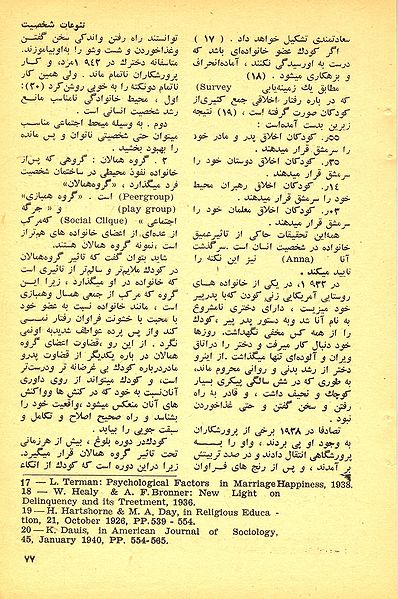 تنوعات شخصیت
سعادتمندی تشکیل خواهد داد . ( ۱۷ )
اگر کودك عضو خانواده‌ای باشد که
درست به اورسیدگی نکنند ، آماده‌انحراف
و بزهکاری میشود . (۱۸)
مطابق یك زمینه‌یابی (Survey
که در باره رفتار اخلاقی جمع کثیری‌از
کودکان صورت گرفته است ، (۱۹) نتیجه
زیرین بدست آمده‌است :
۵۵ر. کودکان اخلاق پدر و مادر خود
را سرمشق قرار میدهند .
۳۵ر. کودکان اخلاق دوستان خود را
سرمشق قرار میدهند .
۱۴ر. کودکان اخلاق رهبران محیط
خود را سرمشق قرار میدهند .
۰۳ر. کودکان اخلاق معلمان خود را
سرمشق قرار میدهند .
همه‌این تحقیقات حاکی از تاثیرعمیق
خانواده در شخصیت انسان است .سرگذشت
آنا (Anna) نیز این نکته را
تایید میکند .
در ۱۹۳۳، در یکی از خانواده هــای
روستایی آمریکایی زنی کودن که‌با پدرپیر
خود میزیست ، دارای دختری نامشروع
به نام آنا شد .وبه دستور پدر پیر ،کودك
را از همه کس مخفی نگهداشت. روزها
خود دنبال کار میرفت و دختر را دراتاق
ویران و آلوده‌ای تنها میگذاشت .از اینرو
دختر از رشد بدنی و روانی محروم ماند،
به طوری که در شش سالگی پیکری بسیار
کوچك و نحیف داشت ، و قادر به راه
رفتن و سخن گفتن و حتی غذاخوردن
نبود .
تصادفا در ۱۹۳۸ برخی از پرورشکاران
به وجود او پی بردند ، واو را بــــه
پرورشگاهی انتقال دادند و در صدد تربیتش
بر آمدند ، و پس از رنج های فــراوان
توانستند راه رفتن واندکی سخن گفتــن
وغذاخوردن و شست وشو را به‌اوبیاموزند.
متاسفانه دخترك در ۱۹۴۳ مرد، و کــار
پرورشکاران ناتمام ماند . ولی همین کار
ناتمام دونکته را به خوبی روشن‌کرد (۲۰):
اول ، محیط خانوادگی نامناسب مانــع
رشد شخصیت انسانی است .
دوم . به وسیله محیط اجتماعی مناسـب
میتوان حتی شخصیتی ناتوان و پس مانده
را بهبود بخشید .
۲ . گروه همالان : گروهی که پس‌از
خانواده نفوذ محیطی در ساختمان شخصیت
فرد میگذارد ، «گروه‌همالان»
(Peergroup) است . «گروه همبازی»
(play group) و « جرگه
اجتماعی » (Social Clique) که‌مرکب
از عده‌ای از اعضای خانواده های همـتراز
است ،نمونه گروه همالان هستند.
شاید بتوان گفت که تاثیر گروه‌همالان
در کودك ملایم‌تر و سالم‌تر از تاثیری است
که خانواده در او میگذارد ، زیرا ایــن
گروه که مرکب از جمعی همسال وهمبازی
است ، مانند خانواده نسبت به عضو خود
با محبت یا خشونت فراوان رفتار نمــی
کند واز پس پرده عواطف شدیدبه اونمی
نگرد . از این رو ،قضاوت اعضای گروه
همالان در باره یکدیگر از قضاوت پدرو
مادردرباره کودك بی غرضانه تر ودرست‌تر
است، و کودك میتواند از روی داوری
آنان‌نسبت به خود که در کنش ها وواکنش
های آنان منعکس میشود ،واقعیت خود را
بشناسد و راه صحیح اصلاح و تکامل و
سبقت جویی را بیابد .
کودك‌در دوره بلوغ ، بیش از هرزمانی
تحت تاثیر گروه همالان قرار میگیرد.
زیرا دراین دوره است که کودك از اتکاء
17 — L. Terman: Psychological Factors in Marriage Happiness, 1938.
18 — W. Healy & A. F. Bronner: New Light on
Delinquency and its Treetment, 1936.
19 — H. Hartshorne & M. A, Day, in Religious Educa -
tion, 21, October 1926, PP. 539 - 554.
20 — K. Dauis, in American Journal of Sociology,
45, January 1940, PP. 554-565.
۷۷